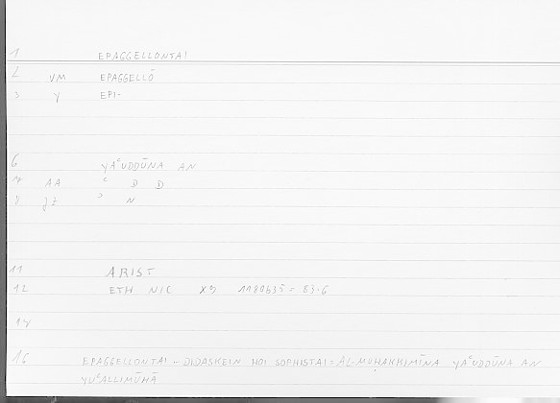 1 EPAGGELLONTAI
2 VM EPAGGELLŌ
3 Y EPI-
6 YAʿUDDŪNA AN
7 AA ʿ D D
8 JZ ʾ N
11 ARIST
12 ETH NIC X9 1180b35 = 53.6
14
16 EPAGGELLONTAI - DIDASKEIN HOI SOPHISTAI = AL-MUḤAKKIMĪNA YAʿUDDŪNA AN
YUʿALLIMŪHĀ